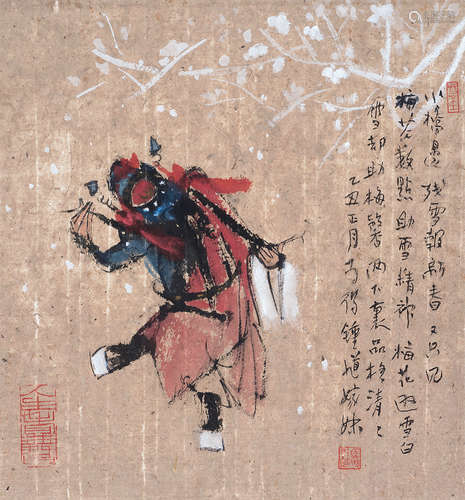 小桥边残雪报新春又只见
梅花数点助雪精神梅花逊雪白
雪却助梅馨两下裹品格清清
乙丑正月写得鍾馗嫁妹